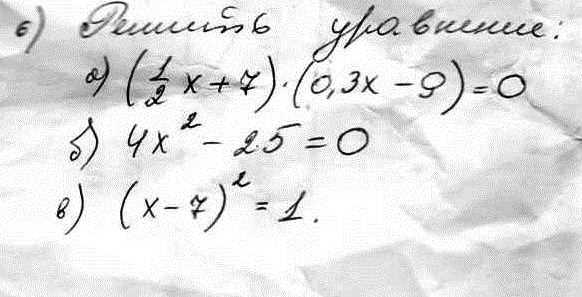 6) Решить уравнение:
а) (1/2 x + 7) · (0,3x − 9) = 0
б) 4x² − 25 = 0
в) (x − 7)² = 1.